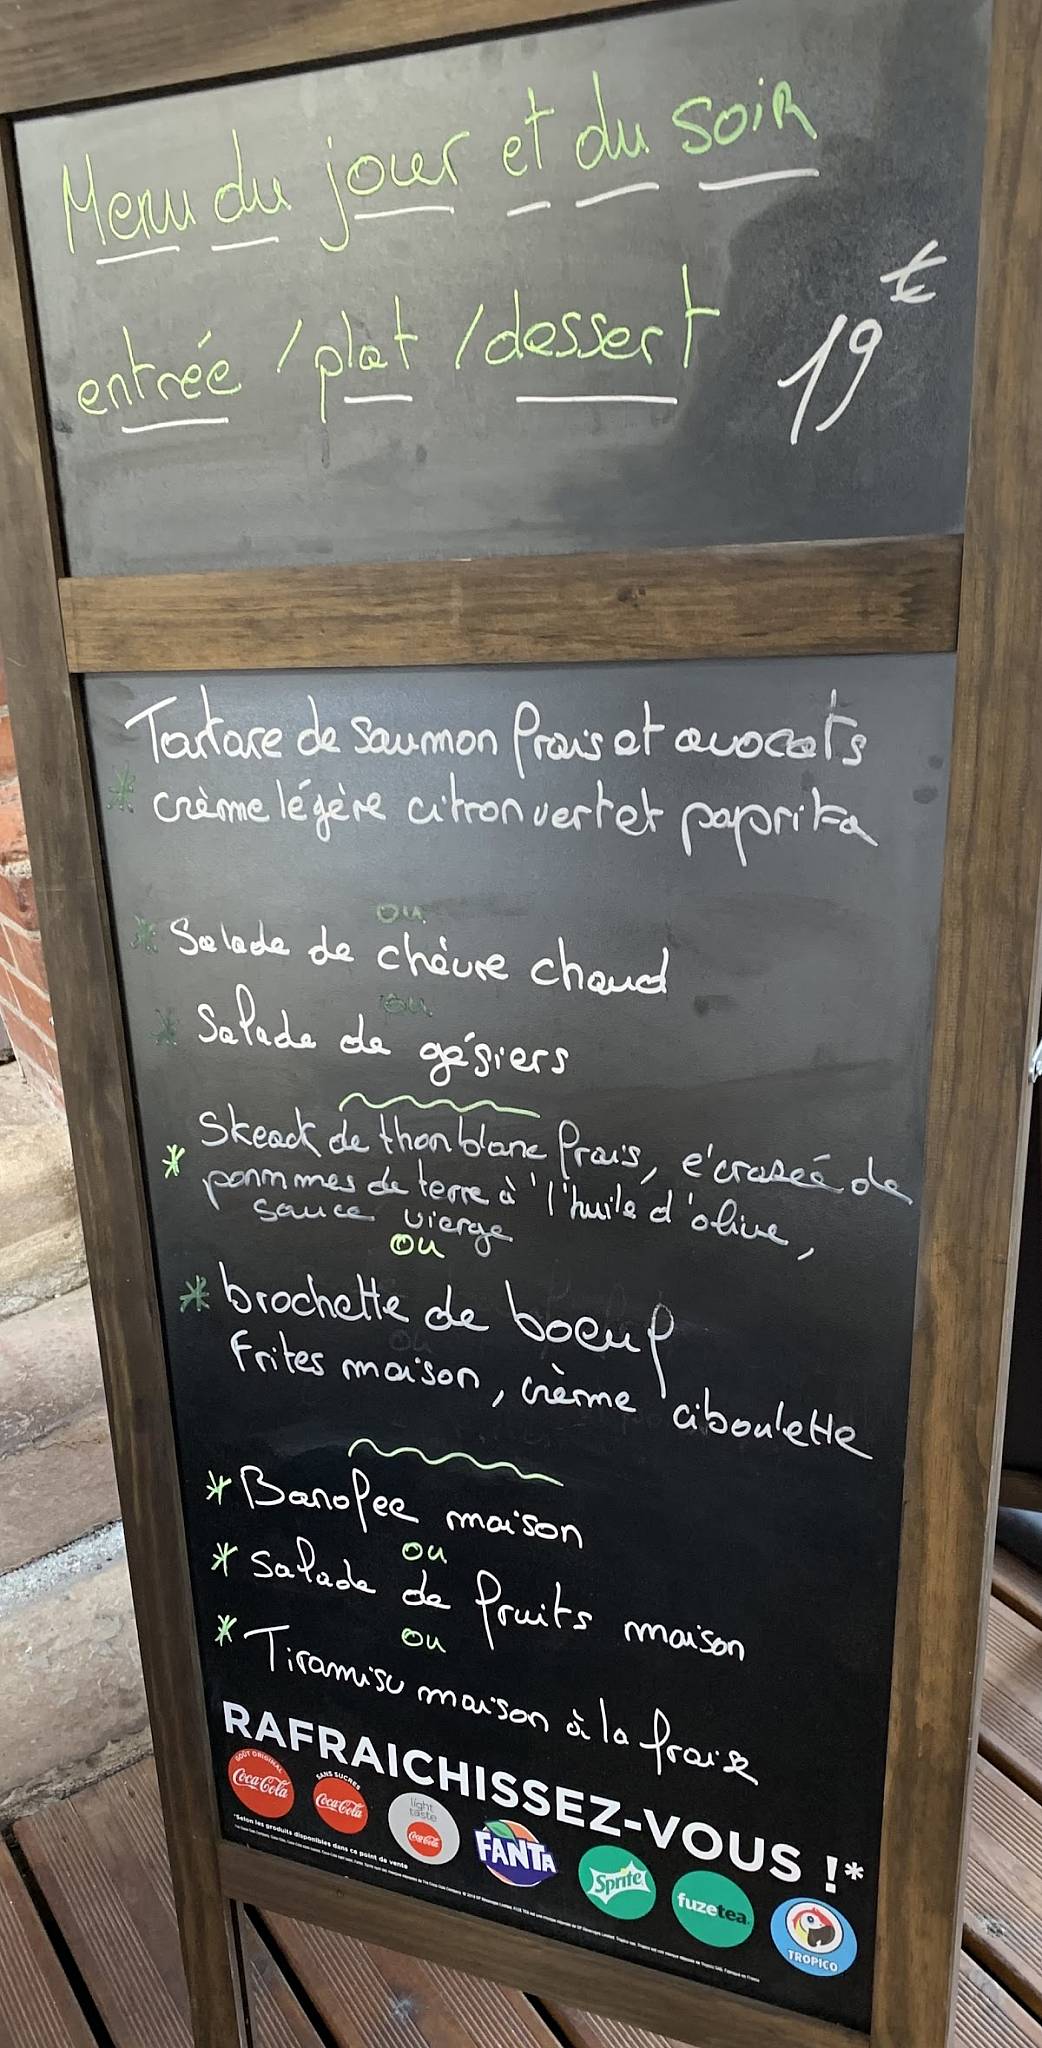 Menu du jour et du soir
entrée / plat / dessert 19€
Tartare de saumon frais et avocats
* crème légère citron vert et paprika
ou
* Salade de chèvre chaud
ou
* Salade de gésiers
Skeack de thon blanc frais, écraseé de
* pommmes de terre à l'huile d'olive,
sauce vierge
ou
* brochette de boeuf
frites maison, crème ciboulette
* Banofee maison
ou
* Salade de fruits maison
ou
* Tiramisu maison à la fraise
RAFRAICHISSEZ-VOUS !*
GOÛT ORIGINAL
Coca-Cola
SANS SUCRES
Coca-Cola
light
taste
Coca-Cola
FANTA
Sprite
fuzetea
TROPICO
*Selon les produits disponibles dans ce point de vente